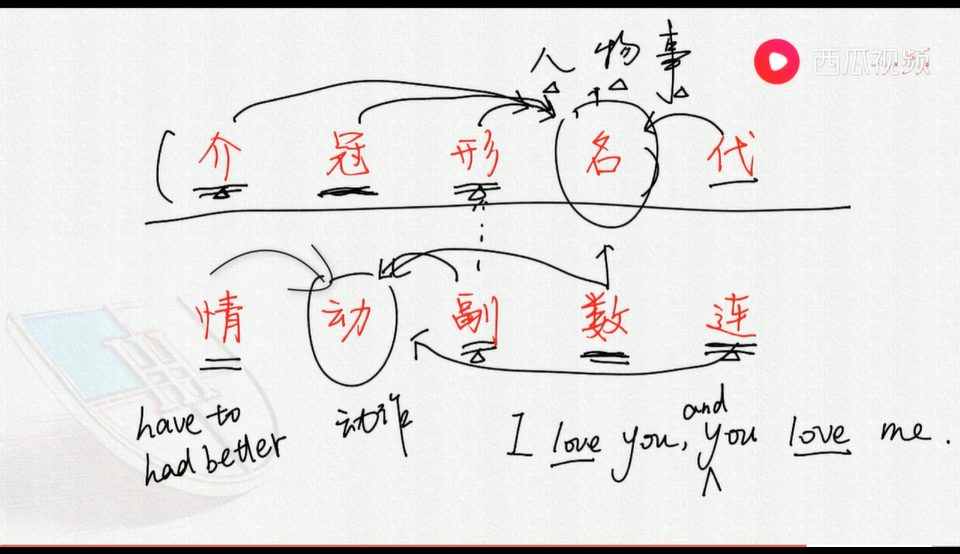 西瓜视频
人 物 事
介 冠 形 名 代
情 动 副 数 连
have to
had better
动作
and
I love you, you love me.